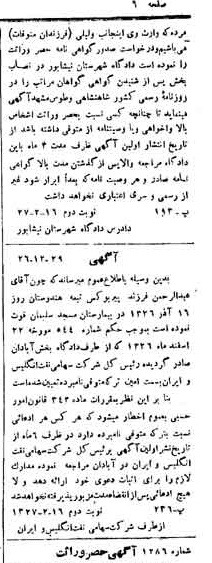 صفحه ٦
مرده که وارث وی اینجانب ولیلی (فرزندان متوفات)
میباشیم ودرخواست صدور گواهی نامه حصر وراثت
را نموده است دادگاه شهرستان نیشابور در نصاب
بخش پس از شنیدن گواهی گواهان مراتب را در
روزنامهٔ رسمی کشور شاهنشاهی وطوس مشهد آگهی
مینماید تا چنانچه کسی نسبت بحصر وراثت اشخاص
بالا واخواهی ویا وصیتنامه از متوفی داشته باشد از
تاریخ انتشار اولین آگهی ظرف مدت ۳ ماه باین
دادگاه مراجعه والاپس از گذشتن مدت بالا گواهی
نامه صادر و هر وصیت نامه که بعداً ابراز شود غیر
از رسمی و سری اعتباری نخواهد داشت
پ-۱۹۳ نوبت دوم ۱٦-۲-۲۷
دادرس دادگاه شهرستان نیشابور
آگهی ۲۹-۱۲-۲٦
بدین وسیله باطلاع عموم میرساند که چون آقای
عبدالرحمن فرزند پیر بوکس تبعه هندوستان روز
۱٦ آذر ۱۳۲٦ در بیمارستان مسجد سلیمان فوت
نموده است بموجب حکم شماره ٥٤٤ مورخه ۲۲
اسفند ماه ۱۳۲٦ که از طرف دادگاه بخش آبادان
صادر گردیده رئیس کل شرکت سهامی نفت انگلیس
و ایران بسمت امین ترکه متوفی نامبرده تعیین شده است
بنا بر این نظر بمقررات ماده ۳٤۳ قانون امور
حسبی بعموم اخطار میشود که هر کس هر ادعائی
نسبت بترکه متوفی نامبرده دارد در ظرف ٦ ماه از
تاریخ نشر اولین آگهی برئیس کل شرکت سهامی نفت
انگلیس و ایران در آبادان مراجعه نموده مدارك
لازم را برای اثبات دعوی خود ارائه دهد و لا
هیچ ادعائی پس از انقضاء مدت مزبور پذیرفته نخواهد شد
پ-۲۳٦ نوبت دوم ۱٦-۲-۱۳۲۷
از طرف شرکت سهامی نفت انگلیس و ایران
شماره ۱۲۸٦ آگهی حصر وراثت